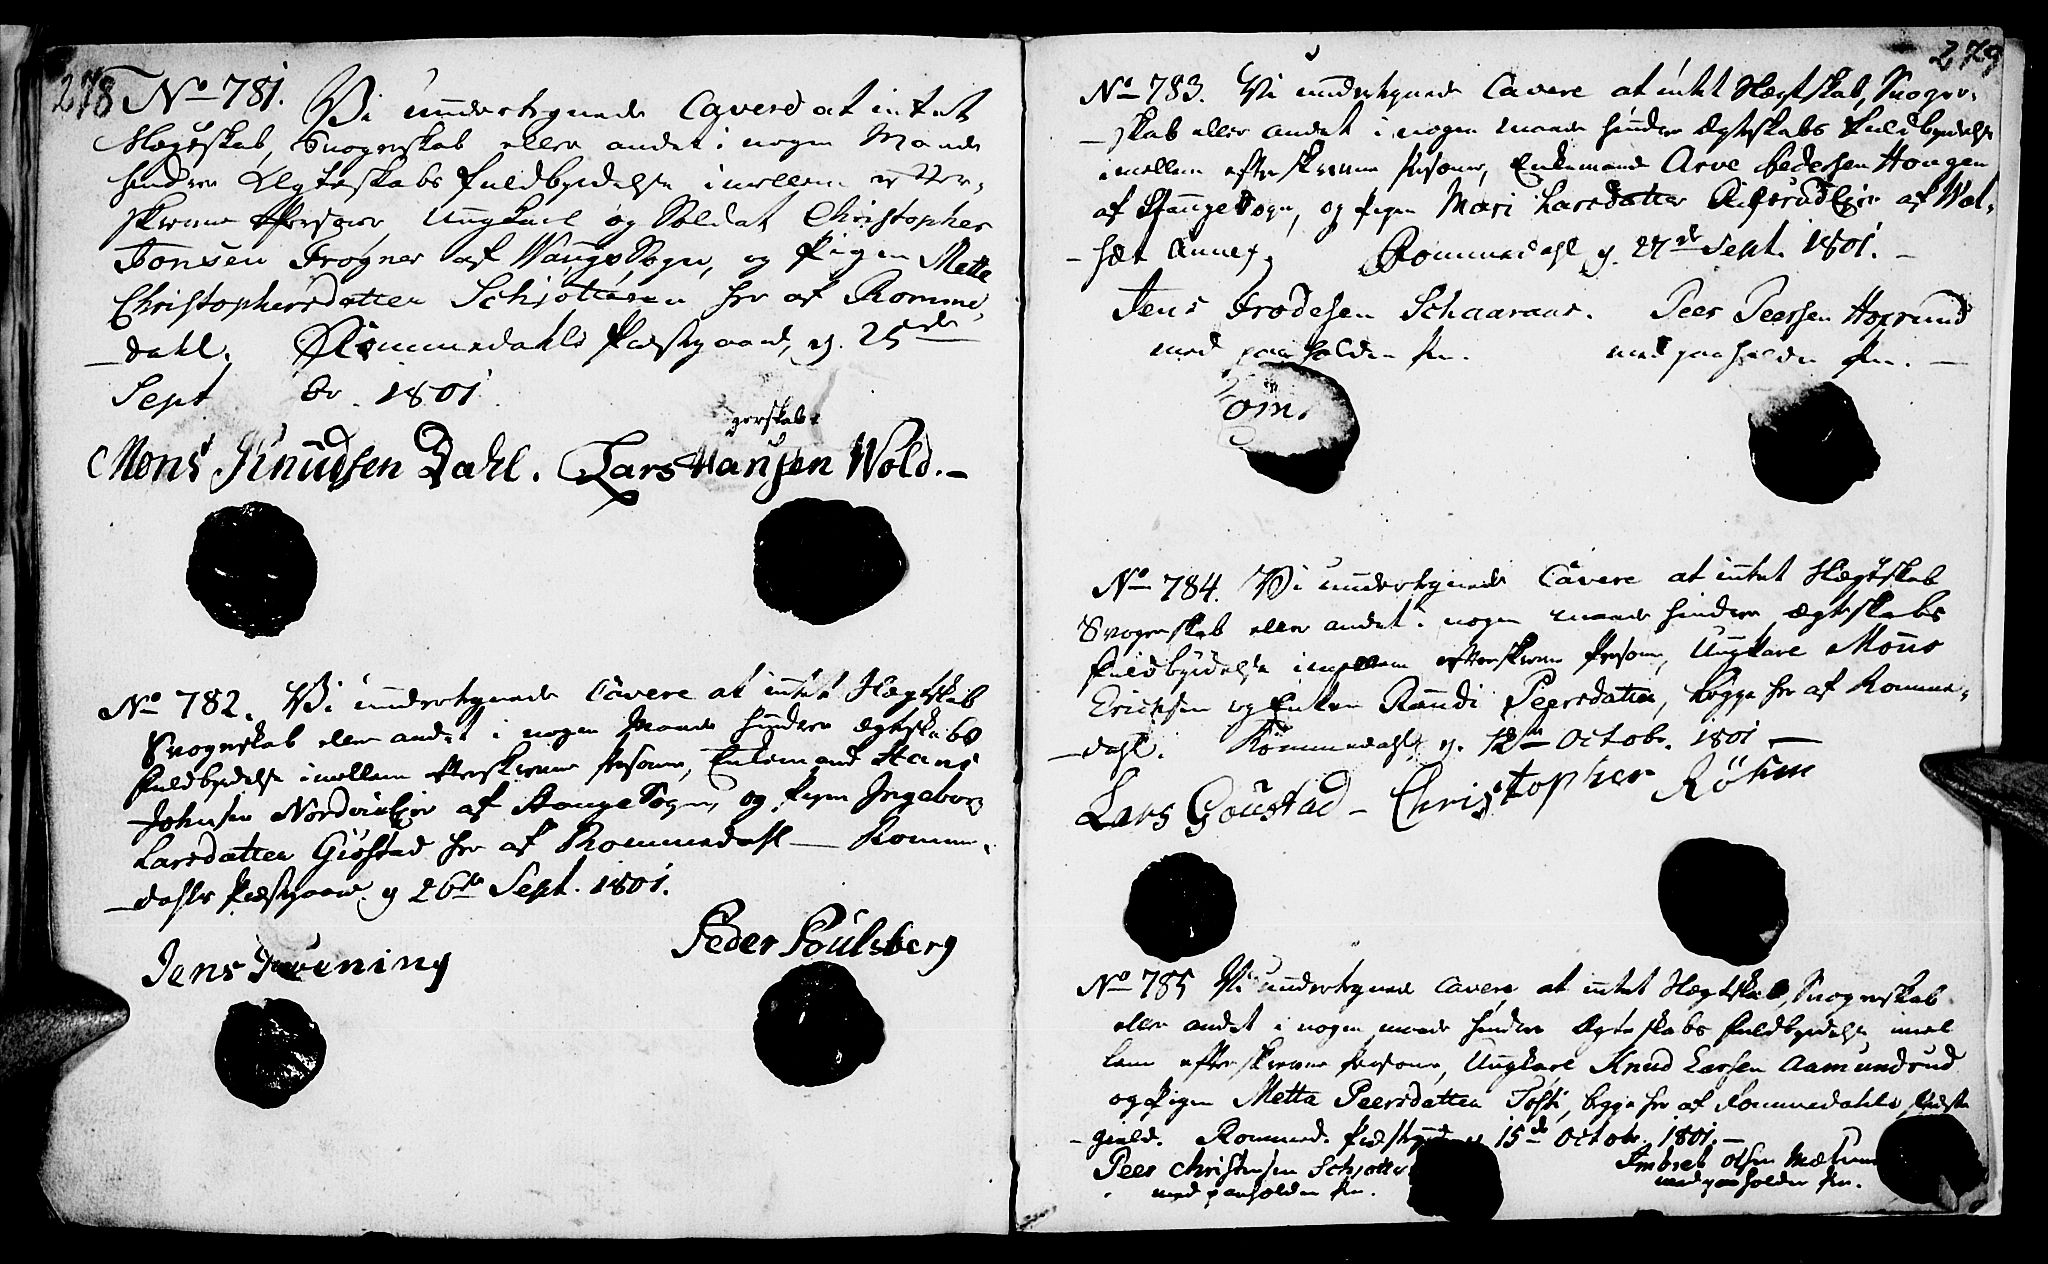 278 No 781. Vi undertegnede Cavere at intet
Slægtskab, Svogerskab eller andet i nogen Maade
hindrer Ægteskabs fuldbyrdelse imellem efter-
skrevne Personer, Ungkarl og Soldat Christopher
Jonsen Frogner af Wangs Sogn, og Pigen Mette
Christophersdatter Schjøttesen her af Romme-
dahl. Rommedahls Præstegaard, d. 25de
Sept br. 1801.
gerskab
Mons Knudsen Dahl. Lars Hansen Wold.
No 782. Vi undertegnede Cavere at intet Slægtskab
Svogerskab eller andet i nogen Maade hindrer Ægteskabs
fuldbyrdelse imellem efterskrevne Personer, Enkemand Hans
Johnsen Nordvie af Stange Sogn, og Pigen Ingebor
Larsdatter Giøstad her af Rommedahl Romme-
dahls Præstegaard d 26de Sept. 1801.
Jens Grøening Peder Poulsberg
279
No 783. Vi undertegnede Cavere at intet Slægtskab, Svoger-
skab eller andet i nogen maade hindrer Ægteskabs fuldbyrdelse
imellem efterskrevne Personer, Enkemand Arve Pedersen Hougen
af Stange Sogn, og Pigen Mari Larsdatter af Wal-
sæt Annex. Rommedahl d. 27de Sept. 1801.
Jens Frodesen Schaaraas. Peer Peersen Hoxrund
med paaholden Pen. med paaholden Pen.
om.
No 784. Vi undertegnede Cavere at intet Slægtskab
Svogerskab eller andet i nogen maade hindrer Ægteskabs
fuldbyrdelse imellem efterskrevne Personer, Ungkarl Mons
Erichsen og Enken Randi Peersdatter, begge her af Romme-
dahl. Rommedahl d. 12te Octobr. 1801
Lars Goustad Christopher Röhm
No 785 Vi undertegnede Cavere at intet Slægtskab, Svogerskab
eller andet i nogen maade hindrer Ægteskabs fuldbyrdelse imel
lem efterskrevne Personer, Ungkarl Knud Larsen Aamundrud
og Pigen Metta Peersdatter Tofti, begge her af Rommedahls Præste
gield. Rommed. Præstegaard d 15de Octobr. 1801.
Peer Christensen Schjøtte Imbret Olsen
med paaholden Pen. med paaholden Pen.